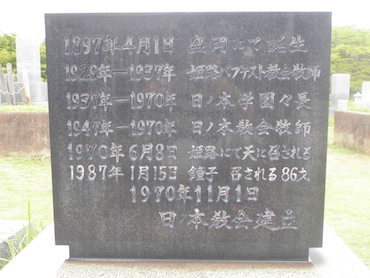 1897年4月1日 盛岡にて誕生
1929年－1937年 姫路バプテスト教会牧師
1937年－1970年 日ノ本学園々長
1947年－1970年 日ノ本教会牧師
1970年6月8日 姫路にて天に召される
1987年1月15日 鐘子 召される86才
1970年11月1日
日ノ本教会建立